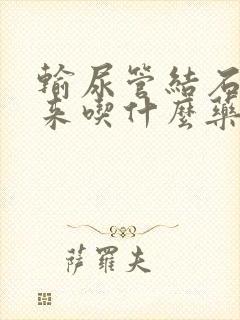 輸尿管結石
來喫什麼藥
薩羅夫